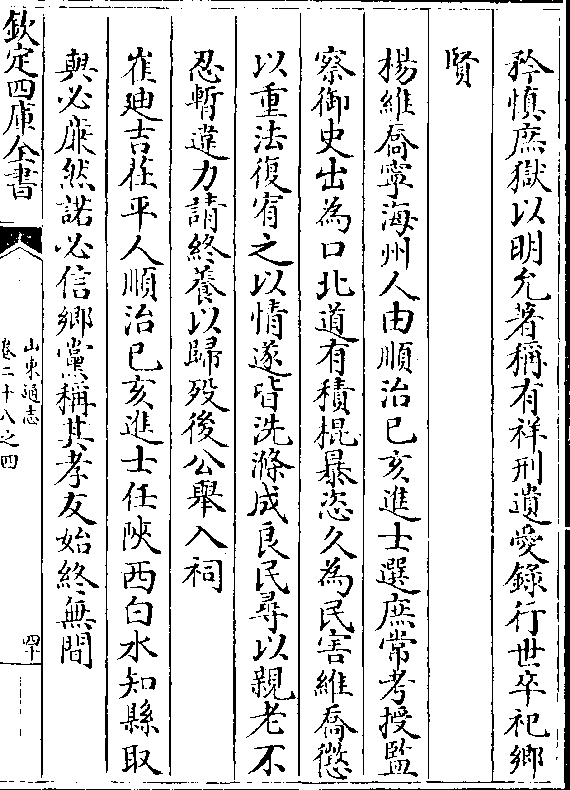 矜慎庶獄以明允著稱有祥刑遺愛錄行世卒祀鄉
賢
楊維喬寧海州人由順治已亥進士選庶常考授監
察御史出為口北道有積棍暴恣久為民害維喬懲
以重法復宥之以情遂皆洗滌成良民尋以親老不
忍暫違力請終養以歸歿後公舉入祠
崔廸吉茌平人順治已亥進士任陜西白水知縣取
與必亷然諾必信鄉黨稱其孝友始終無間
欽定四庫全書
山東通志
卷二十八之四
四十